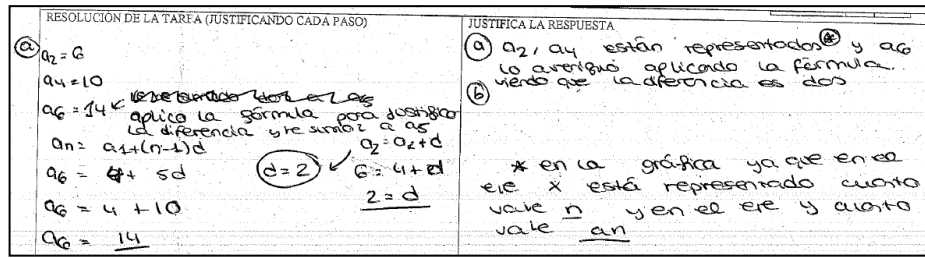 RESOLUCIÓN DE LA TAREA (JUSTIFICANDO CADA PASO)
a
a2 = 6
a4 = 10
a6 = 14
aplico la fórmula para justificar
la diferencia y le sumo 2 a a5
an = a1+(n-1)d
a6 = 4+ 5d
a6 = 4 + 10
a6 = 14
d = 2
a2 = a1+d
6 = 4 + d
2 = d
JUSTIFICA LA RESPUESTA
a a2, a4 están representados* y a6
lo averiguo aplicando la fórmula.
viendo que la diferencia es dos
b
* en la gráfica ya que en el
eje x está representado cuanto
vale n y en el eje y cuanto
vale an